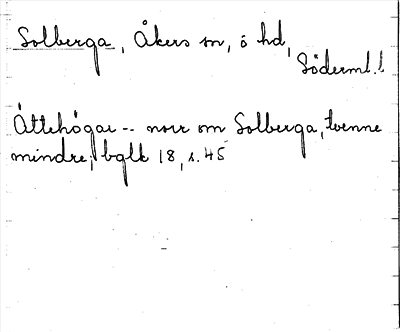 Solberga, Åkers sn, ö hd,
Söderml.l
Ättehögar -- norr om Solberga, tvenne
mindre, bglk 18, s. 45